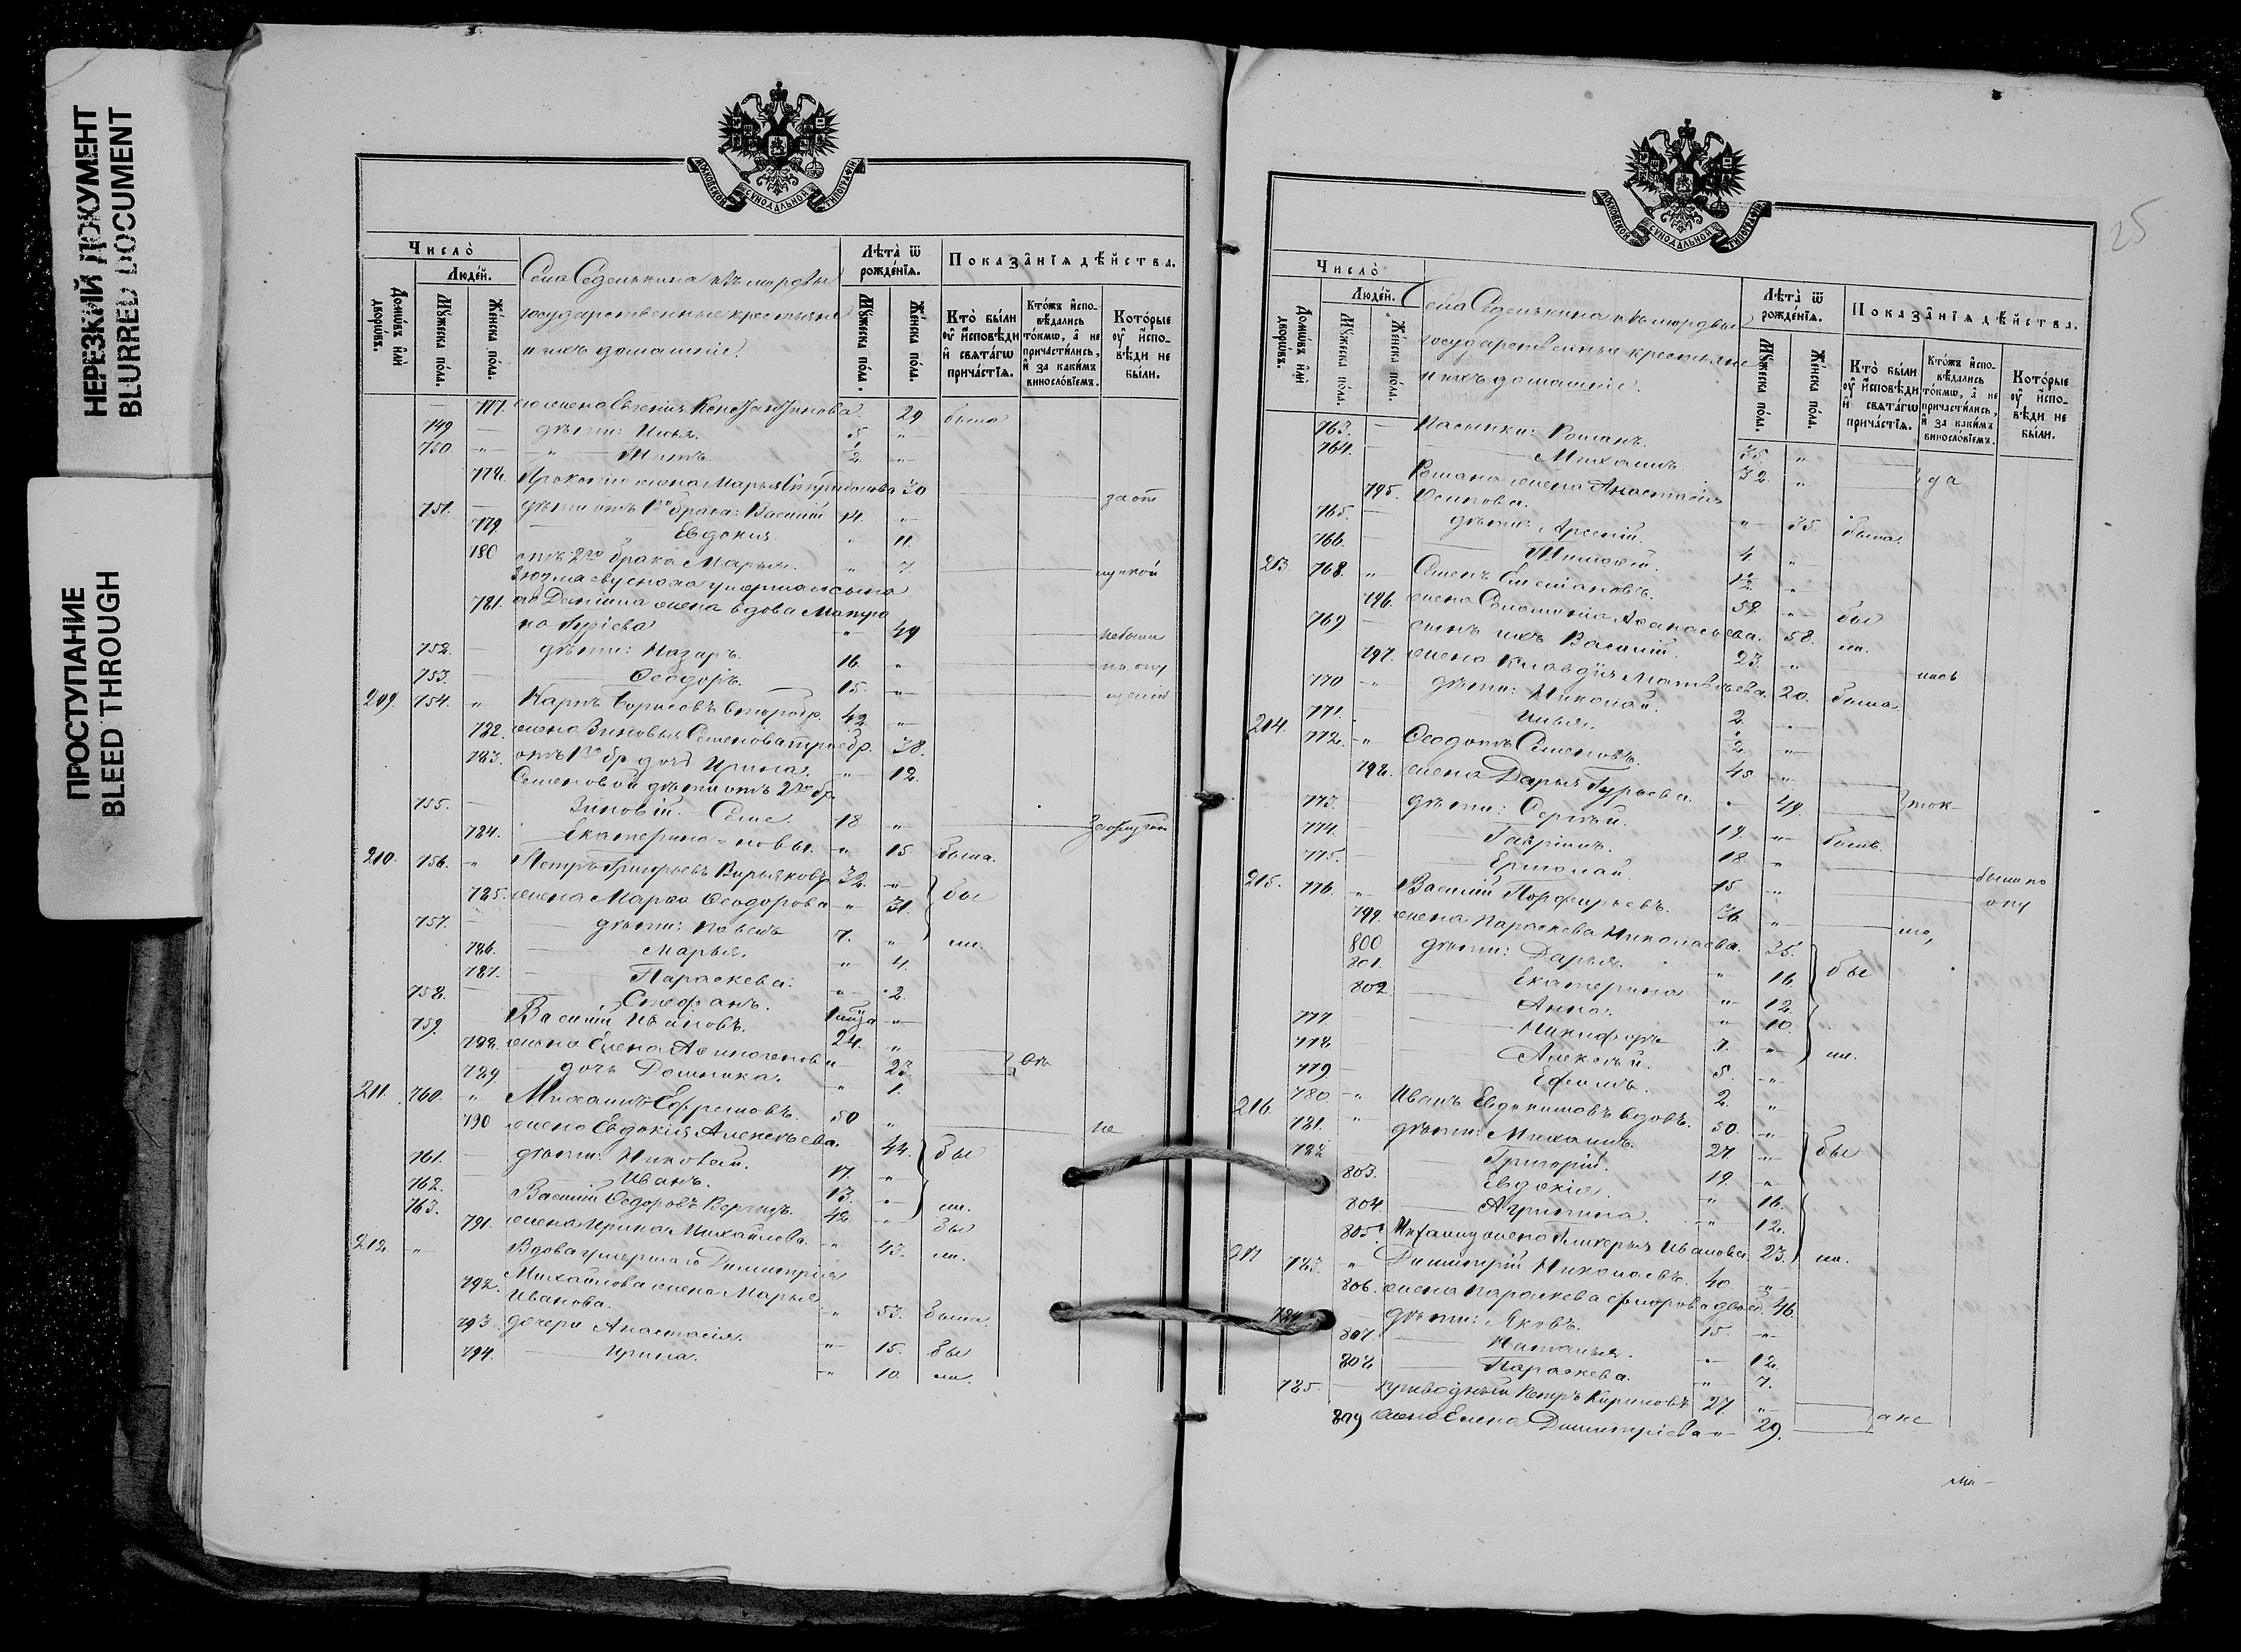 НЕРЕЗКИЙ ДОКУМЕНТ
BLURRED DOCUMENT
ПРОСТУПАНИЕ
BLEED THROUGH
МОСКОВСКОЙ СѴНОДАЛЬНОЙ ТИПОГРАФІИ
Число̀
Домѡвъ и҆лѝ дворѡвъ.
Люде́й.
Мꙋ́жеска по́ла.
Же́нска по́ла.
Села Седелькина изъ мордвы
государственные крестьяне
и ихъ домашніе.
Лѣта̀ ѿ рожде́нїѧ.
Мꙋ́жеска по́ла.
Же́нска по́ла.
Показа̂нїѧ дѣ́йства.
Кто̀ бы́ли оу҆ и҆́сповѣди и҆ свѧта́гѡ прича́стїѧ.
Кто́жъ и҆спо-вѣ́дались то́кмѡ, а҆ не причасти́лись, и҆ за каки́мъ винословїемъ.
Кото́рые оу҆ и҆́спо-вѣди не бы́ли.
777. жена Евгенія Константинова 29 была
749 дѣти: Илья. 5 "
750 " Титъ 2 "
778. Прокопію жена Марья 30
751. дѣти отъ 1го брака: Василій 14. "
779. Евдокия " 11.
780 отъ 2го брака Марья. " 7
сноха умершаго сына
781. его Даніила жена вдова
Гуріева " 49
752. дѣти: Назаръ. 16. "
753. Ѳеодоръ. 15. "
209. 754. " Карпъ Борисовъ второбр. 42 "
782. жена Зиновья Семенова 38.
783. отъ 1го бр дочь Ирина. " 12.
Семеновой дѣти отъ 2го бр.
755. Зиновій. Семе 18 "
784. Екатерина = новы. " 15. была.
210. 756. " Петръ Григорьевъ Кирьяковъ 32. "
785. жена Марѳа Ѳеодорова " 31. бы
757. дѣти: Павелъ 7. " ли.
786. Марья. " 4.
787. Параскева: " 2.
758. Стефанъ. "
759. Василій Ивановъ. 24. "
788. жена Елена Аѳиногенова " 23.
789. дочь Домника. " 1.
211. 760. " Михаилъ Ефремовъ. 50 "
790 жена Евдокія Алексѣева. 44. бы
761. дѣти: Николай. 17. "
762. Иванъ. 13. " ли.
763. Василій Ѳедоровъ 42. " бы
791. жена Ирина Михайлова. " 43. ли.
212. " Вдова умершаго Димитрія
792. Михайлова жена Марья
Иванова. " 53. была.
793. дочери Анастасія. " 15. бы
794. Ирина. " 10. ли.
25
МОСКОВСКОЙ СѴНОДАЛЬНОЙ ТИПОГРАФІИ
Число̀
Домѡвъ и҆лѝ дворѡвъ.
Люде́й.
Мꙋ́жеска по́ла.
Же́нска по́ла.
Села Седелькина изъ мордвы
государственные крестьяне
и ихъ домашніе.
Лѣта̀ ѿ рожде́нїѧ.
Мꙋ́жеска по́ла.
Же́нска по́ла.
Показа̂нїѧ дѣ́йства.
Кто̀ бы́ли оу҆ и҆́сповѣди и҆ свѧта́гѡ прича́стїѧ.
Кто́жъ и҆спо-вѣ́дались то́кмѡ, а҆ не причасти́лись, и҆ за каки́мъ винословїемъ.
Кото́рые оу҆ и҆́спо-вѣди не бы́ли.
763. Пасынки: Романъ. 35. "
764. Михаилъ. 32. " да
Романа жена Анастасія
795. Осипова. " 35. была.
765. дѣти: Арсеній. 4. "
766. Тимоѳей. 1/2. "
213 768. " Семенъ Емеліановъ. 59. " бы
796. жена Соломонія Аѳанасьева. 58. ли.
769. сынъ ихъ Василій. 23. "
797. жена Клавдія Матвѣева. 20. была.
770 " дѣти: Николай. 2. "
771. Илья. "
214. 772. " Ѳеодотъ Семеновъ. 45. "
798. жена Дарья Гурьева. " 49.
773. дѣти: Сергѣй. 19. " былъ.
774. Гавріилъ. 18. "
775. Ермолай. 15 "
215. 776. " Василій Порфирьевъ. 36. "
799. жена Параскева Николаева. 35. бы
800 дѣти: Дарья. " 16.
801. Екатерина " 12.
802. Анна. " 10.
777. Никифоръ 7. " ли.
778. Алексѣй. 5. "
779 Ефимъ. 2. "
216. 780 " Иванъ Евдокимовъ вдовъ. 50. " бы
781. " дѣти: Михаилъ. 27 "
782 Григорій. 19. "
803. Евдокія. " 16.
804. Агрипина. " 12.
805. Михаилу жена Гликерья Иванова. 23. ли.
217 783. " Димитрій Николаевъ. 40. "
806. жена Параскева 46.
784 дѣти: Яковъ. 15. "
807. Наталья. " 12.
808. Параскева. " 7.
785. Петръ Кириловъ 27. "
809 жена Елена Димитріева " 29.